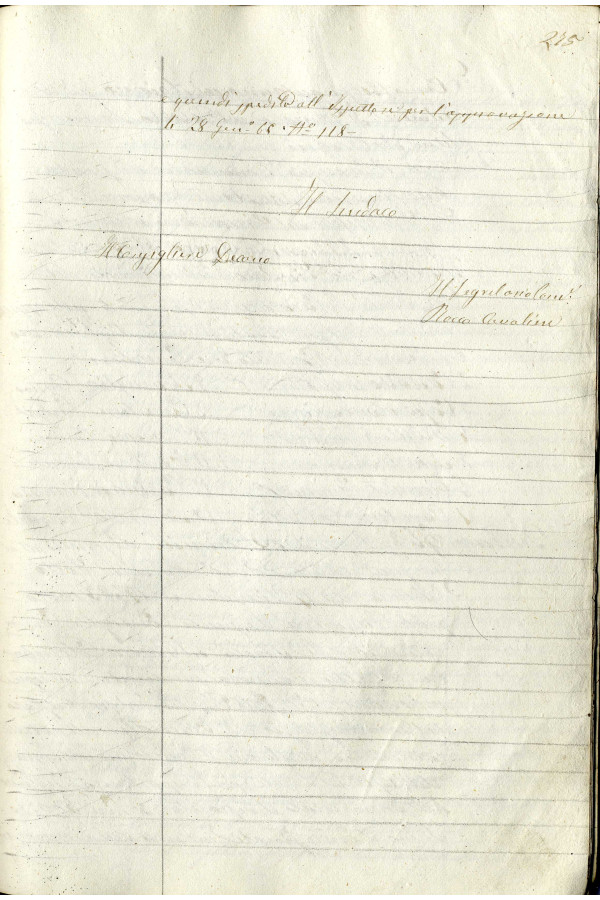 215
e quindi spedito all'Ispettore per l'approvazione
li 28 Gen° 65. N° 118
Il Sindaco
Il Consigliere
Il Segretario Com.e
Rocco